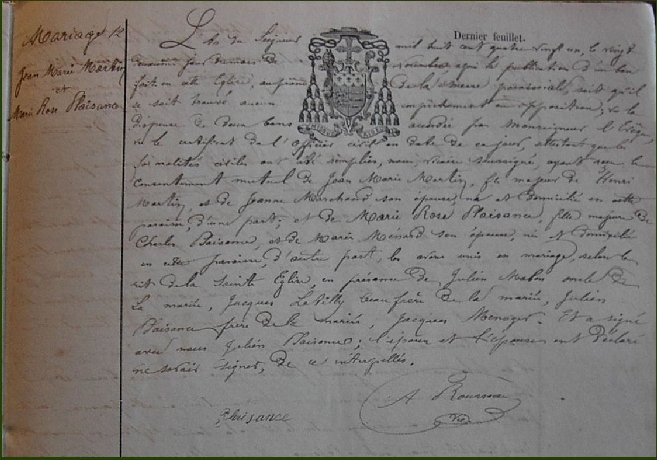 Dernier feuillet.
Mariage 12
Jean Marie Martin
et
Marie Rose Plaisance
L'An du Seigneur mil huit cent quatre vingt un, le vingt
novembre après la publication d'un ban
fait en cette Eglise, au prône de la messe paroissiale, sans qu'il
se soit trouvé aucun empêchement ou opposition; vu la
dispense de deux bans accordée par Monseigneur l'Evêque,
vu le certificat de l'officier civil en date de ce jour, attestant que les
formalités civiles ont été remplies, nous, vicaire soussigné, ayant reçu le
consentement mutuel de Jean Marie Martin, fils majeur de Henri
Martin, et de Jeanne Marchand son épouse, né et domicilié en cette
paroisse, d'une part; et de Marie Rose Plaisance, fille majeure de
Charles Plaisance, et de Marie Menand son épouse, née et domiciliée
en cette paroisse, d'autre part, les avons unis en mariage, selon le
rit de la Sainte Eglise, en présence de Julien Mahos oncle de
la mariée, Jacques beau frère de la mariée, Julien
Plaisance frère de la mariée, Jacques Menager. Et a signé
avec nous Julien Plaisance; l'époux et l'épouse ont déclaré
ne savoir signer, de ce interpellés.
A
Plaisance